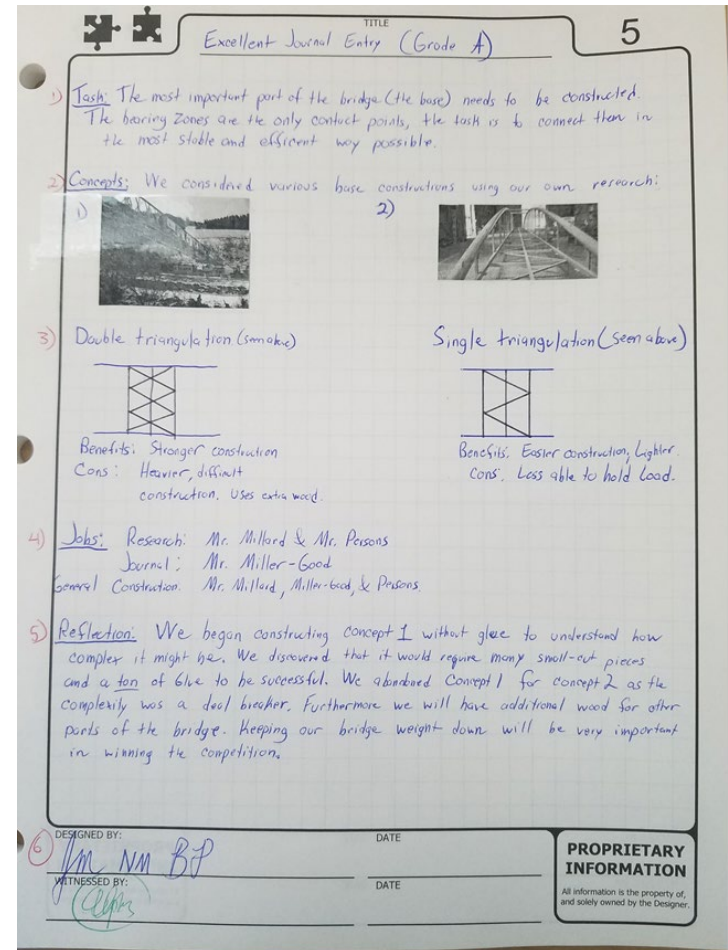 TITLE
Excellent Journal Entry (Grade A)
5
1) Task: The most important part of the bridge (the base) needs to be constructed.
The bearing zones are the only contact points, the task is to connect them in
the most stable and efficent way possible.
2) Concepts: We considered various base constructions using our own research:
1)
2)
3) Double triangulation (seen above)
Single triangulation (seen above)
Benefits: Stronger construction
Cons: Heavier, difficult
construction. Uses extra wood.
Benefits: Easier construction, Lighter.
Cons: Less able to hold load.
4) Jobs: Research: Mr. Millard & Mr. Persons
Journal: Mr. Miller-Good
General Construction: Mr. Millard, Miller-Good, & Persons
5) Reflection: We began constructing concept 1 without glue to understand how
complex it might be. We discovered that it would require many small-cut pieces
and a ton of Glue to be successful. We abandoned Concept 1 for concept 2 as the
complexity was a deal breaker. Furthermore we will have additional wood for other
parts of the bridge. Keeping our bridge weight down will be very important
in winning the competition.
6
DESIGNED BY:
DATE
JM NM BP
WITNESSED BY:
DATE
PROPRIETARY
INFORMATION
All information is the property of,
and solely owned by the Designer.